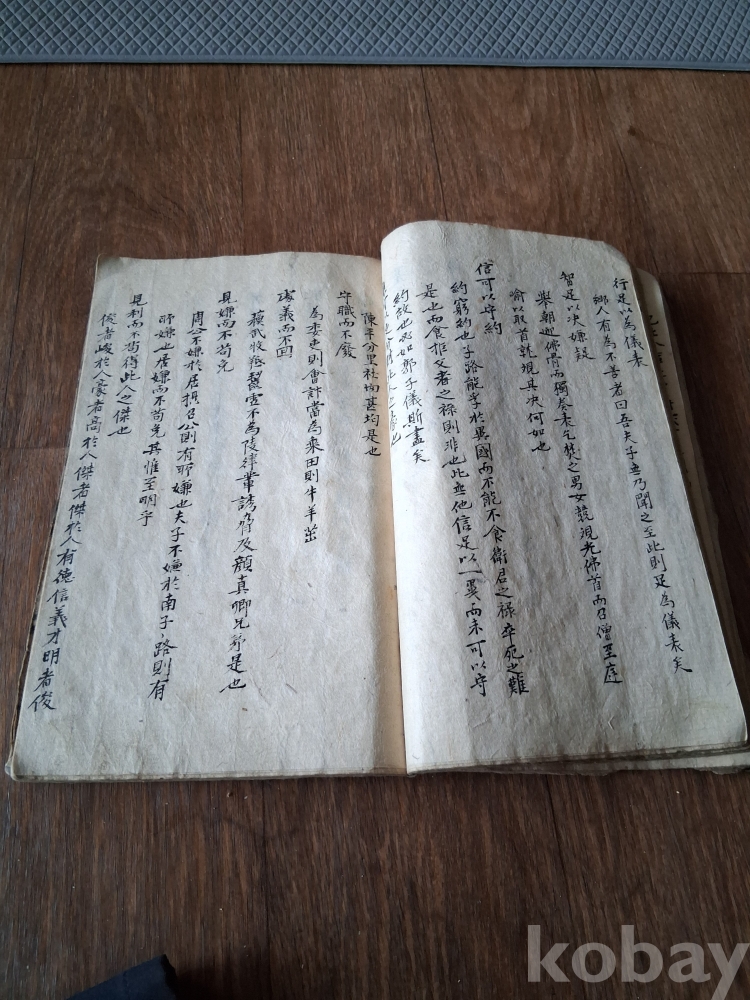 行足以為儀表
鄉人有為不善者曰吾夫子無乃聞之至此則足為儀表矣
智足以决嫌疑
舉朝迎佛骨而獨奏表之男女競現光佛首而召僧至庭
喻以取首就現其决何如也
信可以守約
約窮約也子路能孚於異國而不能不食衛君之祿卒死之難
是也而食推父者之祿則非也此無他信足以一異而未可以守
約故也必如郭子儀斯盡矣
陳平分里社均甚均是也
守職而不廢
為委吏則會計當為乘田則牛羊茁
處義而不回
蘇武收羝齧雪不為陵律輩誘脅及顏真卿兄弟是也
見嫌而不苟免
周公不嫌於居攝召公則有所嫌也夫子不嫌於南子路則有
所嫌也居嫌而不苟免其惟至明乎
見利而不苟得此人之傑也
俊者峻於人豪者高於人傑者傑於人有德信義才明者俊
kobay